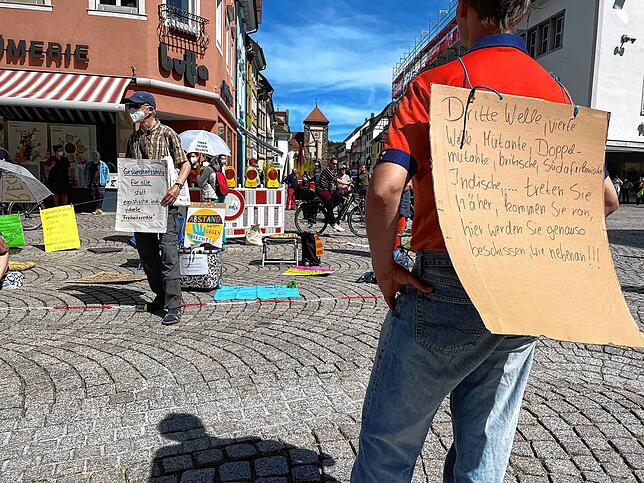 ÜMERIE
butta
Gesundheitsschutz
für alle
statt
egoistische und
rechte
Freiheitsrechte
ABSTAND
GEGEN
RECHTS
Dritte Welle, vierte
Welle, Mutante, Doppel-
mutante, britische, Südafrikanische
Indische,... treten Sie
näher, kommen Sie ran,
hier werden Sie genauso
beschissen, wie nebenan!!!